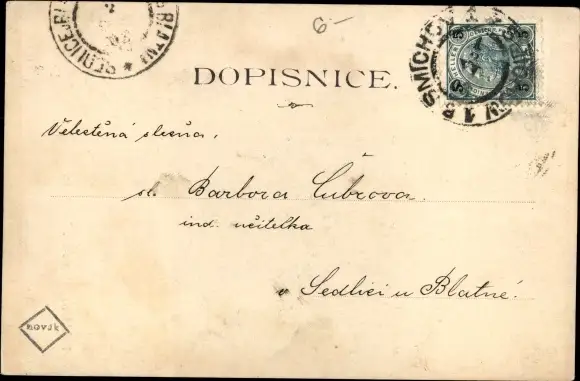 6-
SEDLICE
BLATNÁ
SMICHOV 1
DOPISNICE.
Velectěná slečna,
sl. Barbora Čubrova.
ind. učitelka
v Sedlici u Blatné.
novák